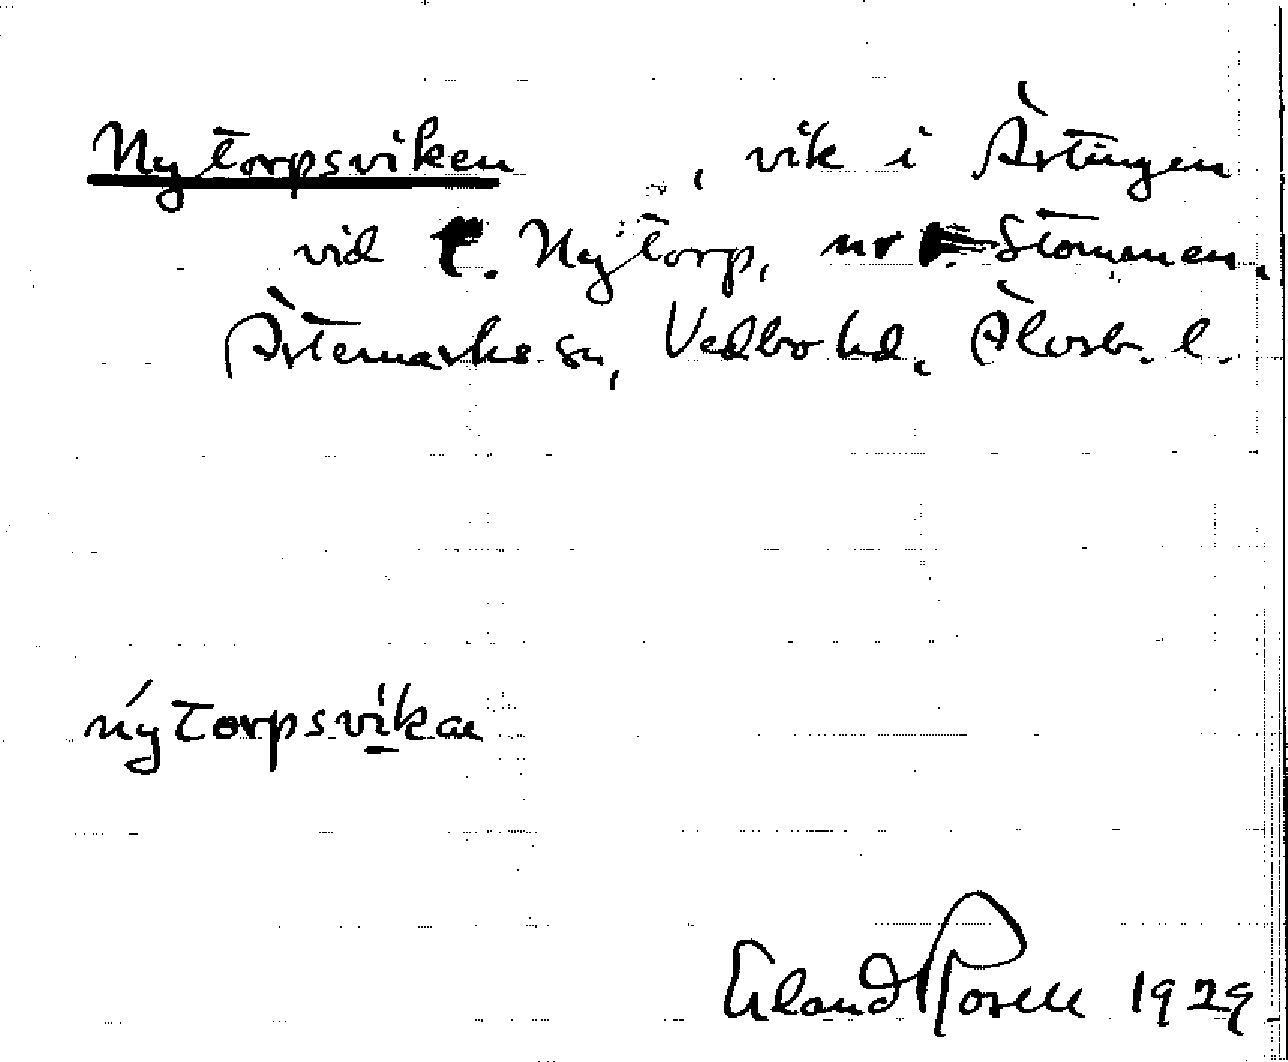 Nytorpsviken, vik i Ärtingen
vid t. Nytorp, nr Stommen,
Ärtemarks sn, Vedbo hd, Älvsb. l.
nýtorpsvikan
Erland Rosell 1929